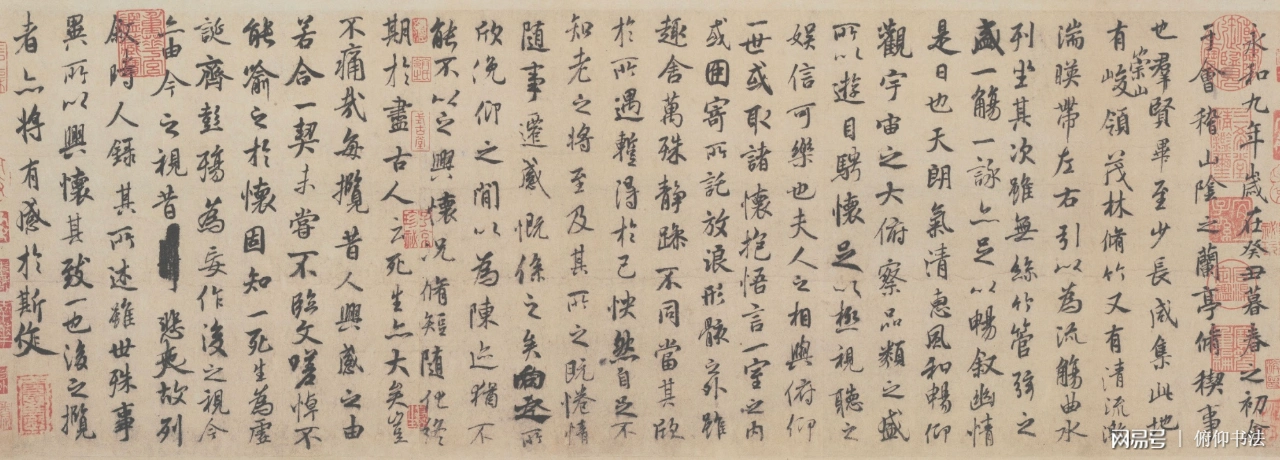 永和九年歲在癸丑暮春之初會
于會稽山陰之蘭亭脩稧事
也羣賢畢至少長咸集此地
有崇山峻領茂林脩竹又有清流激
湍暎帶左右引以為流觴曲水
列坐其次雖無絲竹管弦之
盛一觴一詠亦足以暢敘幽情
是日也天朗氣清惠風和暢仰
觀宇宙之大俯察品類之盛
所以遊目騁懷足以極視聽之
娛信可樂也夫人之相與俯仰
一世或取諸懷抱悟言一室之內
或因寄所託放浪形骸之外雖
趣舍萬殊靜躁不同當其欣
於所遇暫得於己怏然自足不
知老之將至及其所之既惓情
隨事遷感慨係之矣向之所
欣俛仰之間以為陳迹猶不
能不以之興懷況脩短隨化終
期於盡古人云死生亦大矣豈
不痛哉每攬昔人興感之由
若合一契未嘗不臨文嗟悼不
能喻之於懷固知一死生為虛
誕齊彭殤為妄作後之視今
亦由今之視昔悲夫故列
敘時人錄其所述雖世殊事
異所以興懷其致一也後之攬
者亦將有感於斯文
网易号 | 俯仰书法